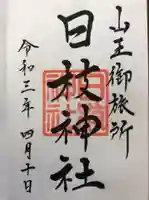 山王御旅所
日枝神社
令和三年 四月十日